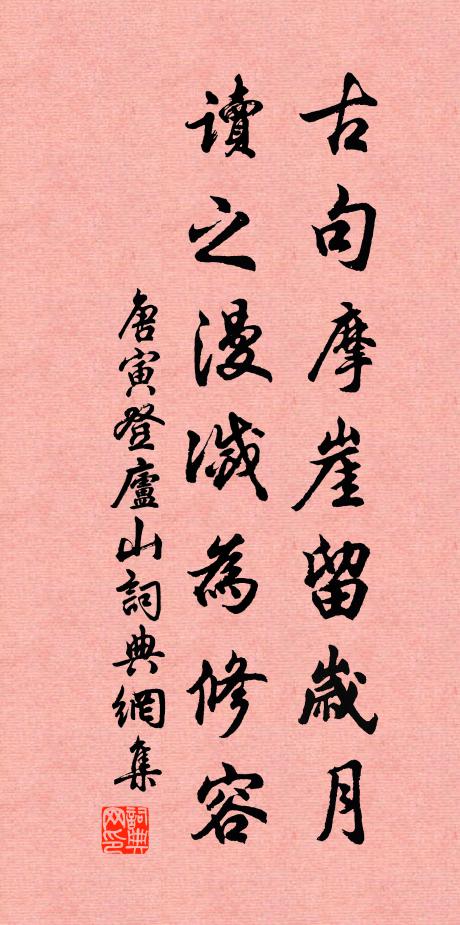 古句摩崖留歲月
讀之漫滅為修容
唐寅登廬山詞典網集
詞典网印